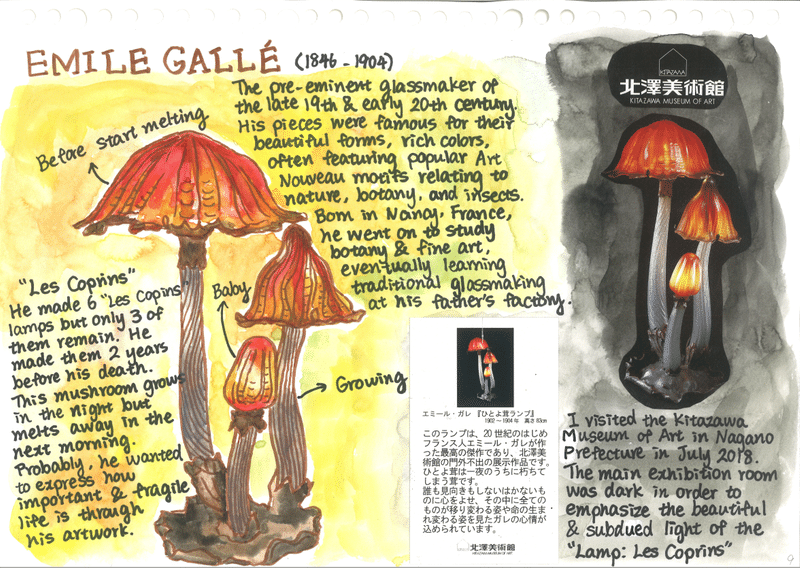 EMILE GALLÉ (1846-1904)
The pre-eminent glassmaker of
the late 19th & early 20th century.
His pieces were famous for their
beautiful forms, rich colors,
often featuring popular Art
Nouveau motifs relating to
nature, botany, and insects.
Born in Nancy, France,
he went on to study
botany & fine art,
eventually learning
traditional glassmaking
at his father's factory.
Before start melting
"Les Coprins"
He made 6 "Les Copins
lamps but only 3 of
them remain. He
made them 2 years
before his death.
This mushroom grows
in the night but
melts away in the
next morning.
Probably, he wanted
to express how
important & fragile
life is through
his artwork.
Baby
Growing
エミール・ガレ 『ひとよ茸ランプ』
1902~1904年 高さ83cm
このランプは、20世紀のはじめ
フランス人エミール・ガレが作
った最高の傑作であり、北澤美
術館の門外不出の展示作品です。
ひとよ茸は一夜のうちに朽ちて
しまう茸です。
誰も見向きもしないはかないも
のに心をよせ、その中に全ての
ものが移り変わる姿や命の生ま
れ変わる姿を見たガレの心情が
込められています。
北澤美術館
KITAZAWA
北澤美術館
KITAZAWA MUSEUM OF ART
I visited the Kitazawa
Museum of Art in Nagano
Prefecture in July 2018.
The main exhibition room
was dark in order to
emphasize the beautiful
& subdued light of the
"Lamp: Les Coprins"
9